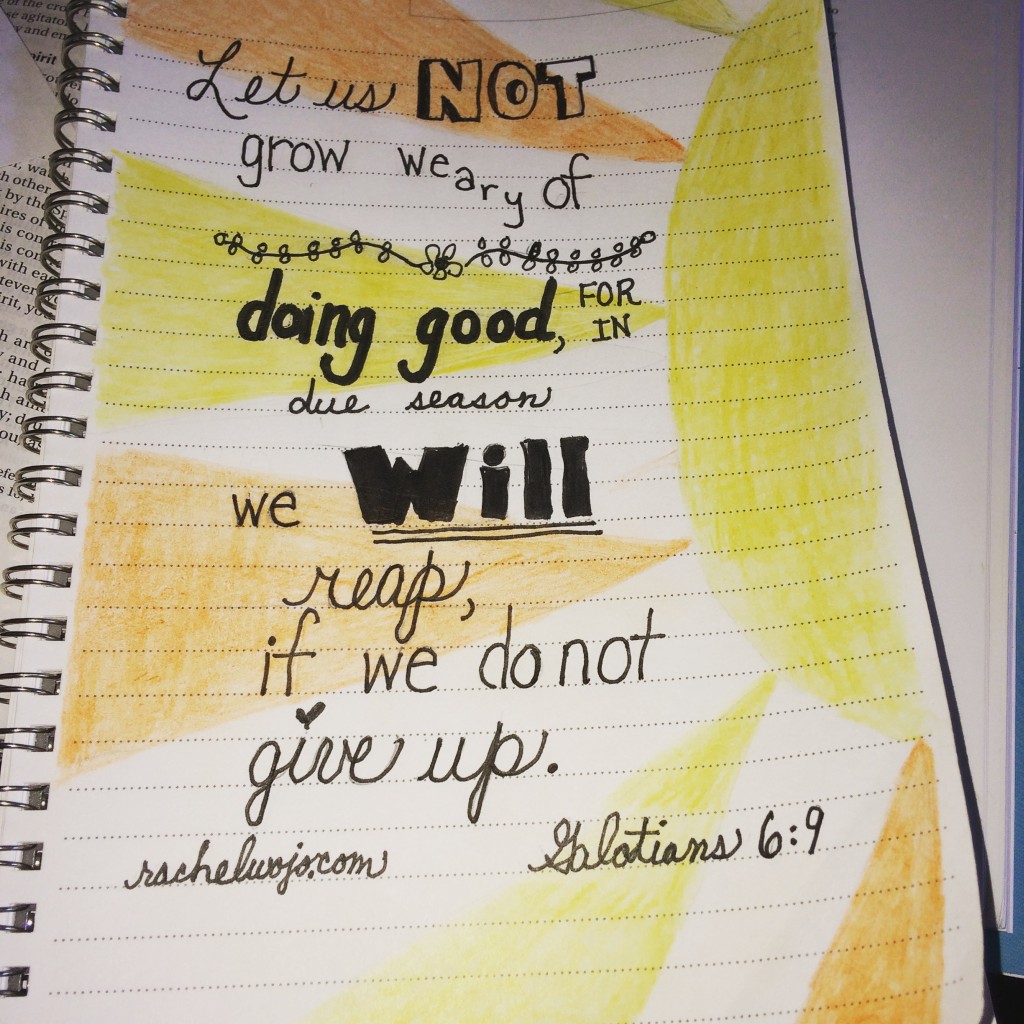 Let us NOT
grow weary of
doing good, FOR
IN
due season
we Will
reap,
if we do not
give up.
rachelwojo.com
Galatians 6:9